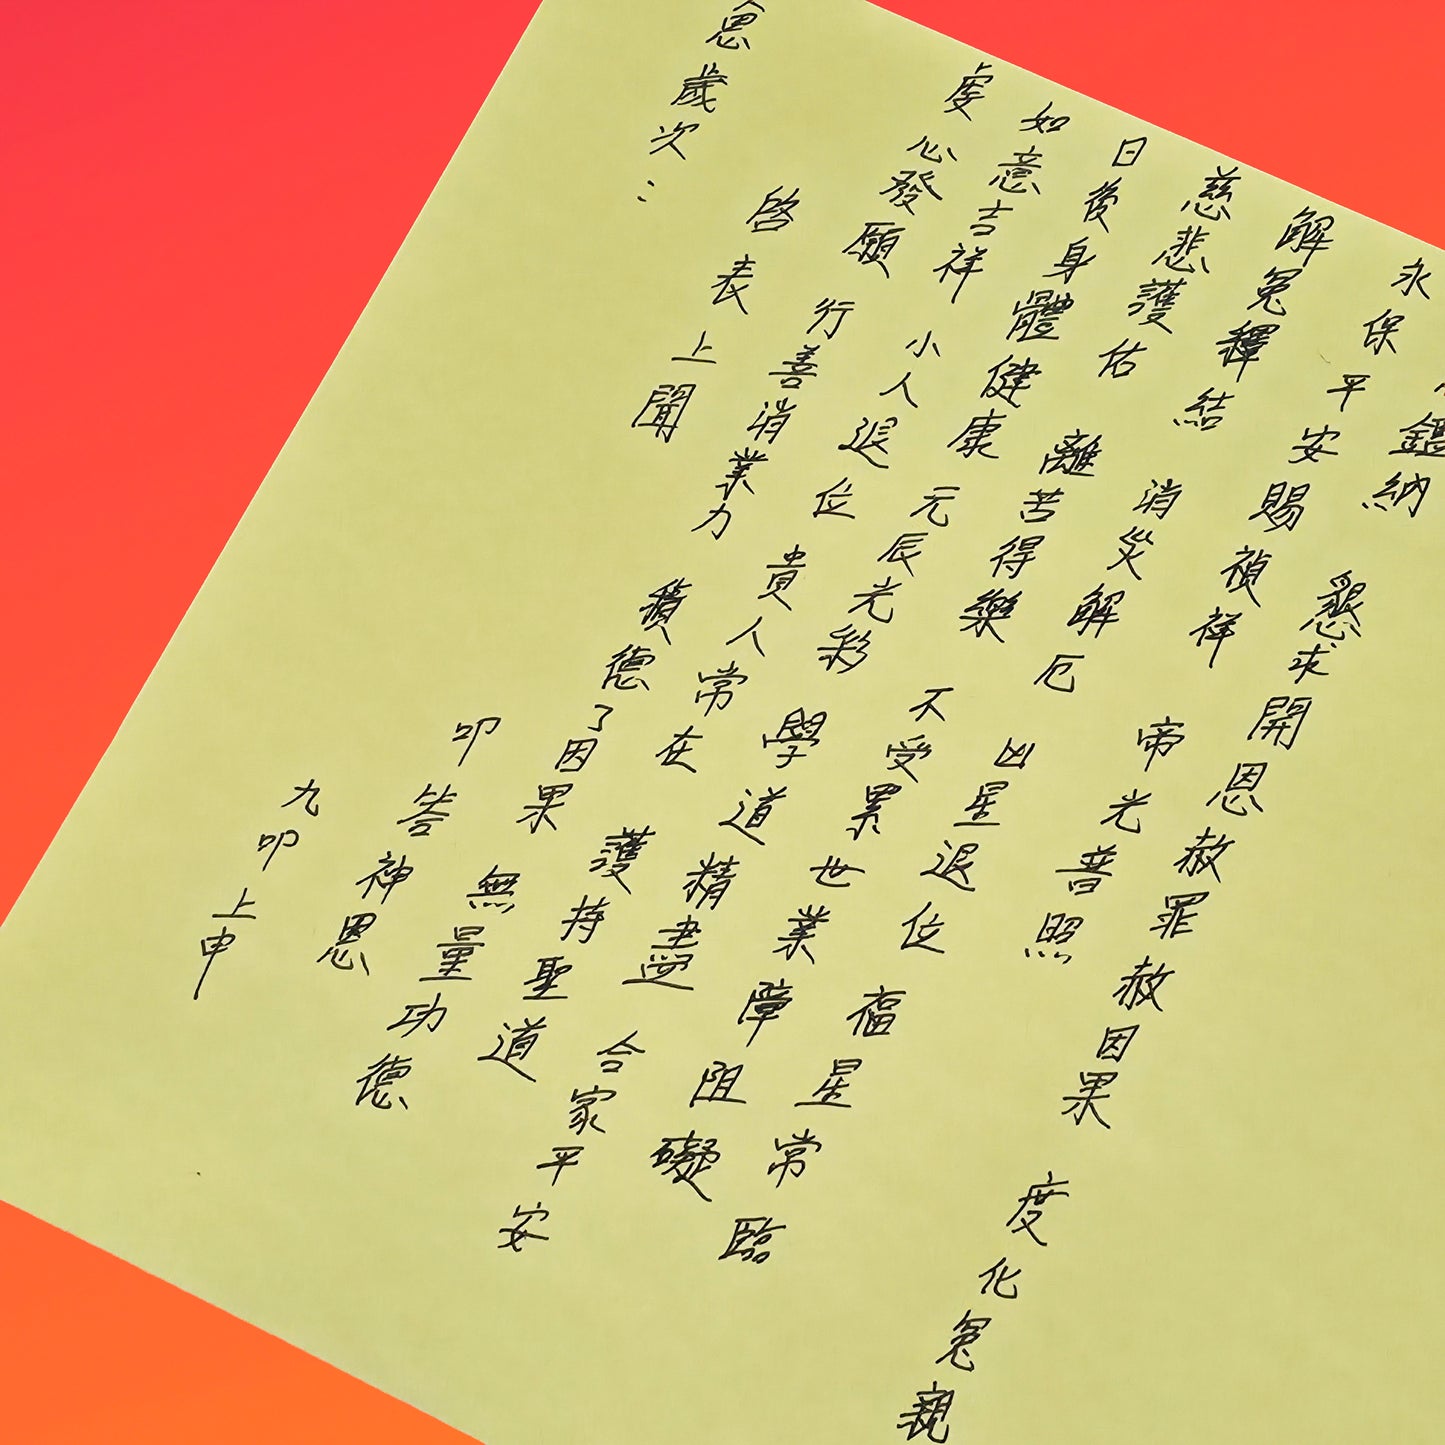 鑑納 懇求開恩赦罪赦因果 度化冤親
永保平安賜禎祥 帝光普照
解冤釋結 消災解厄 凶星退位 福星常臨
慈悲護佑 離苦得樂 不受累世業障阻礙
日後身體健康 元辰光彩 學道精 合家平安
如意吉祥 小人退位 貴人常在 護持聖道
虔心發願 行善消業力 積德了因果 無量功德
啓表上聞 叩答神恩
歲次： 九叩上申